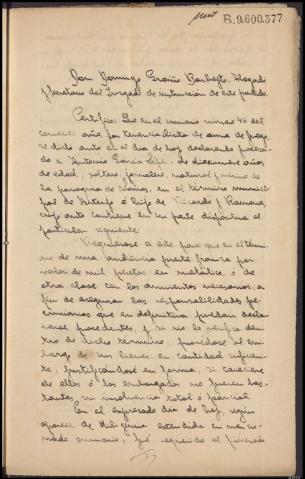 B.9.600.577
Don Domingo Graiño Barbeyto, Abogado
y Secretario del Juzgado de instrucción de este partido.
Certifico: Que en el sumario número 46 del
corriente año, por tenencia ilícita de arma de fuego,
se dictó auto en el día de hoy declarando procesado
a Antonio García López, de diecinueve años
de edad, soltero, jornalero, natural y vecino de
la parroquia de, en el término municipal
de, é hijo de Ricardo y Ramona,
cuyo auto contiene en su parte dispositiva el
particular siguiente:
Requiérase a este para que en el término
de una audiencia preste fianza por
valor de mil pesetas en metálico, ó de
otra clase con los aumentos necesarios, a
fin de asegurar las responsabilidades pecuniarias
que en definitiva puedan declararse
procedentes, y si no lo verifica dentro
de dicho término, procédase al embargo
de sus bienes en cantidad suficiente,
justificándose en forma, si careciere
de ellos ó los embargados no fueren bastantes,
su insolvencia total ó parcial.
En el expresado día de hoy, según
aparece de diligencia extendida en mencionado
sumario, fué requerido el procesado